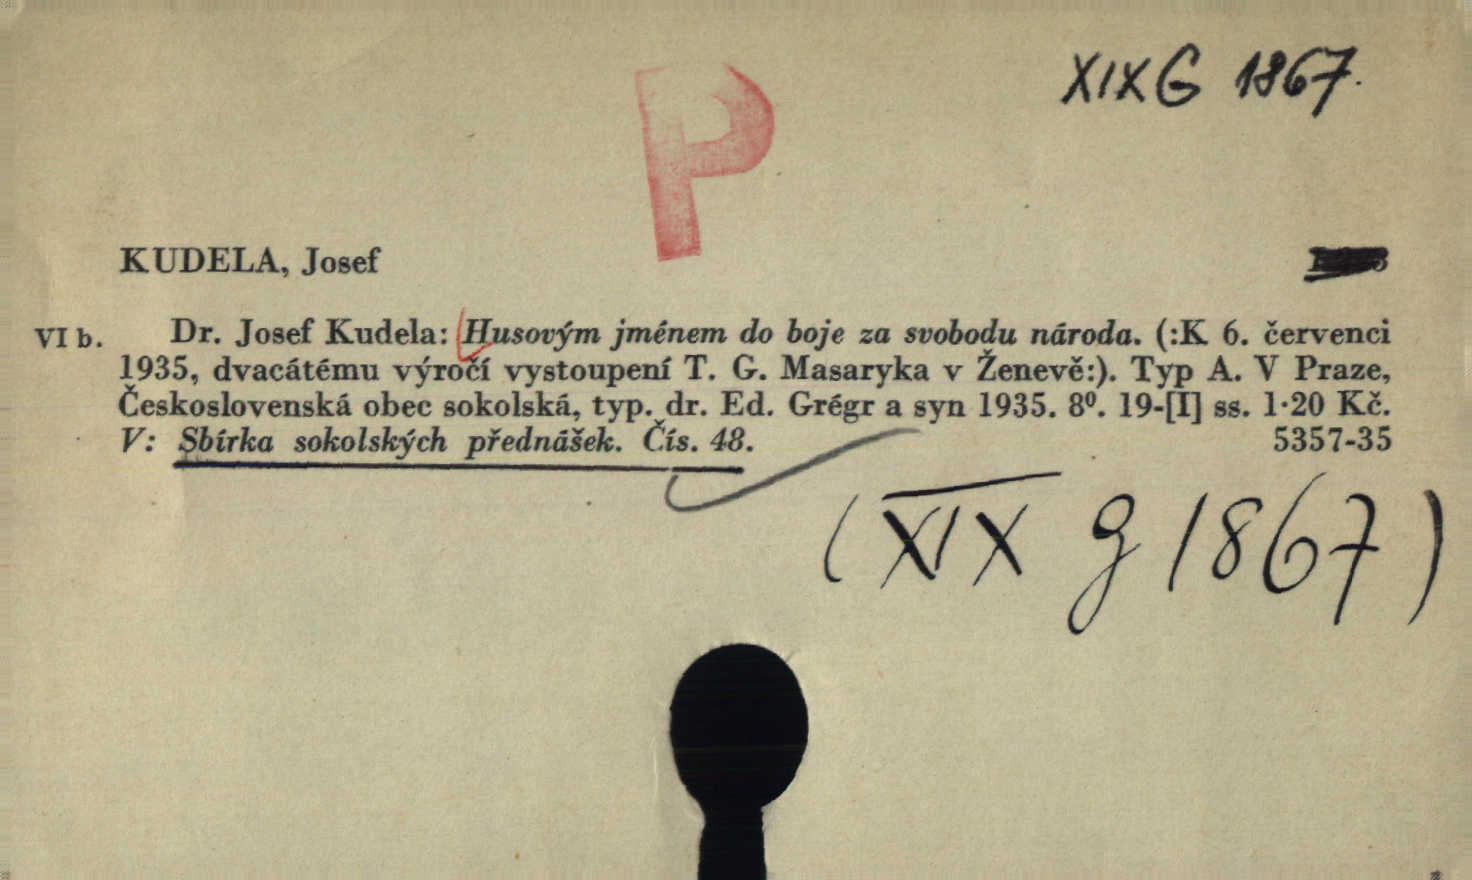 XIX G 1867.
P
KUDELA, Josef
VI b. Dr. Josef Kudela: Husovým jménem do boje za svobodu národa. (:K 6. červenci
1935, dvacátému výročí vystoupení T. G. Masaryka v Ženevě:). Typ A. V Praze,
Československá obec sokolská, typ. dr. Ed. Grégr a syn 1935. 8⁰. 19-[I] ss. 1·20 Kč.
V: Sbírka sokolských přednášek. Čís. 48. 5357-35
(XIX g 1867)